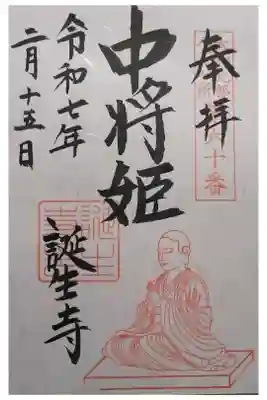 奉拝
中将姫
誕生寺
令和七年
二月十五日